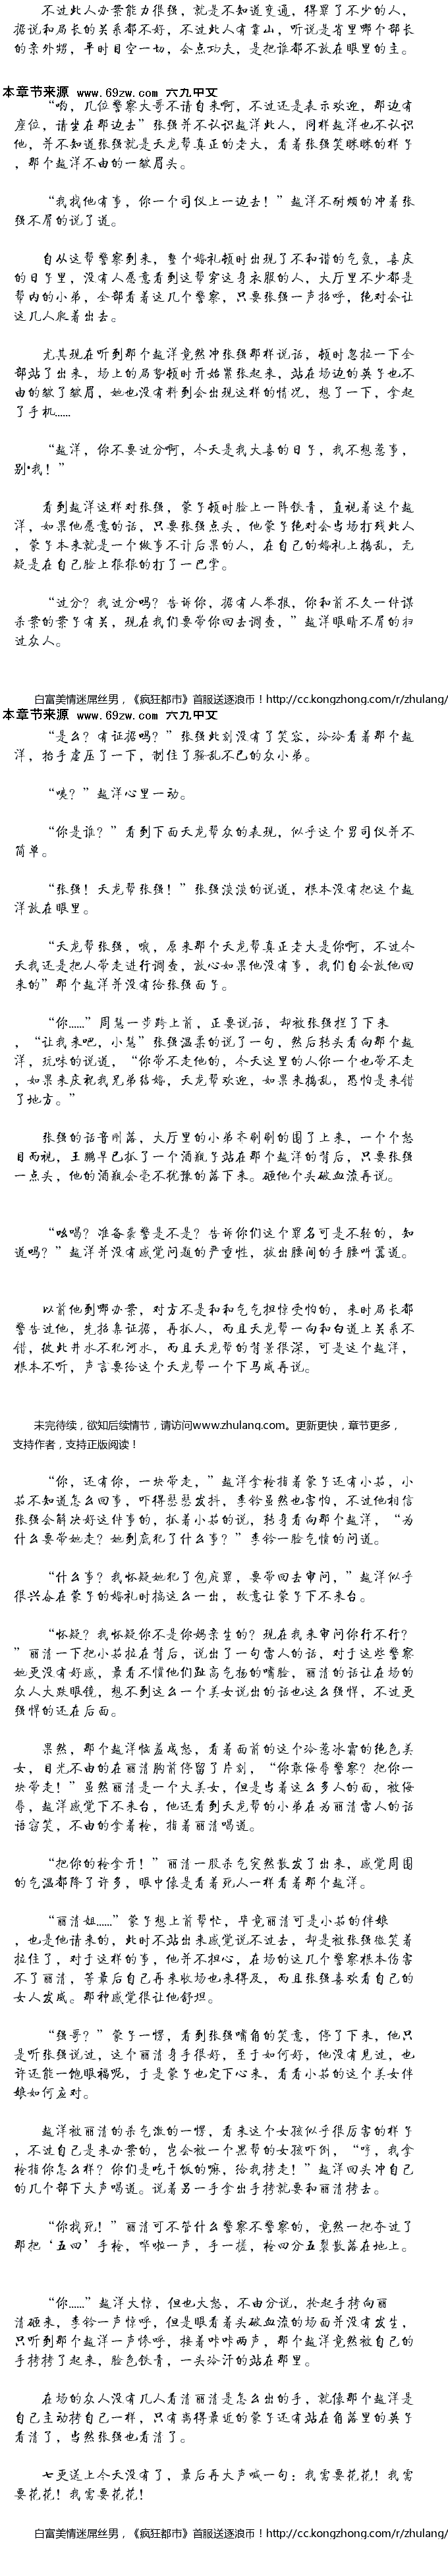 不过此人办案能力很强，就是不知道变通，得罪了不少的人，
据说和局长的关系都不好，不过此人有靠山，听说是省里哪个部长
的亲外甥，平时目空一切，会点功夫，是把谁都不放在眼里的主。
本章节来源 www.69zw.com 六九中文
“哟，几位警察大哥不请自来啊，不过还是表示欢迎，那边有
座位，请坐在那边去”张强并不认识赵洋此人，同样赵洋也不认识
他，并不知道张强就是天龙帮真正的老大，看着张强笑眯眯的样子
，那个赵洋不由的一皱眉头。
“我找他有事，你一个司仪上一边去！”赵洋不耐烦的冲着张
强不屑的说了道。
自从这帮警察到来，整个婚礼顿时出现了不和谐的气氛，喜庆
的日子里，没有人愿意看到这帮穿这身衣服的人，大厅里不少都是
帮内的小弟，全部看着这几个警察，只要张强一声招呼，绝对会让
这几人爬着出去。
尤其现在听到那个赵洋竟然冲张强那样说话，顿时忽拉一下全
部站了出来，场上的局势顿时开始紧张起来，站在场边的英子也不
由的皱了皱眉，她也没有料到会出现这样的情况，想了一下，拿起
了手机……
“赵洋，你不要过分啊，今天是我大喜的日子，我不想惹事，
别*我！”
看到赵洋这样对张强，蒙子顿时脸上一阵铁青，直视着这个赵
洋，如果他愿意的话，只要张强点头，他蒙子绝对会当场打残此人
，蒙子本来就是一个做事不计后果的人，在自己的婚礼上捣乱，无
疑是在自己脸上狠狠的打了一巴掌。
“过分？我过分吗？告诉你，据有人举报，你和前不久一件谋
杀案的案子有关，现在我们要带你回去调查，”赵洋眼睛不屑的扫
过众人。
白富美情迷屌丝男，《疯狂都市》首服送逐浪币！http://cc.kongzhong.com/r/zhulang/
本章节来源 www.69zw.com 六九中文
“是么？有证据吗？”张强此刻没有了笑容，冷冷看着那个赵
洋，抬手虚压了一下，制住了骚乱不已的众小弟。
“咦？”赵洋心里一动。
“你是谁？”看到下面天龙帮众的表现，似乎这个男司仪并不
简单。
“张强！天龙帮张强！”张强淡淡的说道，根本没有把这个赵
洋放在眼里。
“天龙帮张强，哦，原来那个天龙帮真正老大是你啊，不过今
天我还是把人带走进行调查，放心如果他没有事，我们自会放他回
来的”那个赵洋并没有给张强面子。
“你……”周慧一步跨上前，正要说话，却被张强拦了下来
，“让我来吧，小慧”张强温柔的说了一句，然后转头看向那个赵
洋，玩味的说道，“你带不走他的，今天这里的人你一个也带不走
，如果来庆祝我兄弟结婚，天龙帮欢迎，如果来捣乱，恐怕是来错
了地方。”
张强的话音刚落，大厅里的小弟齐刷刷的围了上来，一个个怒
目而视，王鹏早已抓了一个酒瓶子站在那个赵洋的背后，只要张强
一点头，他的酒瓶会毫不犹豫的落下来。砸他个头破血流再说。
“吆喝？准备袭警是不是？告诉你们这个罪名可是不轻的，知
道吗？”赵洋并没有感觉问题的严重性，拔出腰间的手腰叫嚣道。
以前他到哪办案，对方不是和和气气担惊受怕的，来时局长都
警告过他，先招集证据，再抓人，而且天龙帮一向和白道上关系不
错，彼此井水不犯河水，而且天龙帮的背景很深，可是这个赵洋，
根本不听，声言要给这个天龙帮一个下马威再说。
未完待续，欲知后续情节，请访问www.zhulang.com。更新更快，章节更多，
支持作者，支持正版阅读！
“你，还有你，一块带走，”赵洋拿枪指着蒙子还有小茹，小
茹不知道怎么回事，吓得瑟瑟发抖，李铃虽然也害怕，不过他相信
张强会解决好这件事的，抓着小茹的说，转身看向那个赵洋，“为
什么要带她走？她到底犯了什么事？”李铃一脸气愤的问道。
“什么事？我怀疑她犯了包庇罪，要带回去审问，”赵洋似乎
很兴奋在蒙子的婚礼时搞这么一出，故意让蒙子下不来台。
“怀疑？我怀疑你不是你妈亲生的？现在我来审问你行不行？
”丽清一下把小茹拉在背后，说出了一句雷人的话，对于这些警察
她更没有好感，最看不惯他们趾高气扬的嘴脸，丽清的话让在场的
众人大跌眼镜，想不到这么一个美女说出的话也这么强悍，不过更
强悍的还在后面。
果然，那个赵洋恼羞成怒，看着面前的这个冷惹冰霜的绝色美
女，目光不由的在丽清胸前停留了片刻，“你敢侮辱警察？把你一
块带走！”虽然丽清是一个大美女，但是当着这么多人的面，被侮
辱，赵洋感觉下不来台，他还看到天龙帮的小弟在为丽清雷人的话
语窃笑，不由的拿着枪，指着丽清喝道。
“把你的枪拿开！”丽清一股杀气突然散发了出来，感觉周围
的气温都降了许多，眼中像是看着死人一样看着那个赵洋。
“丽清姐……”蒙子想上前帮忙，毕竟丽清可是小茹的伴娘
，也是他请来的，此时不站出来感觉说不过去，却是被张强微笑着
拉住了，对于这样的事，他并不担心，在场的这几个警察根本伤害
不了丽清，等最后自己再来收场也来得及，而且张强喜欢看自己的
女人发威。那种感觉很让他舒坦。
“强哥？”蒙子一愣，看到张强嘴角的笑意，停了下来，他只
是听张强说过，这个丽清身手很好，至于如何好，他没有见过，也
许还能一饱眼福呢，于是蒙子也定下心来，看看小茹的这个美女伴
娘如何应对。
赵洋被丽清的杀气激的一愣，看来这个女孩似乎很厉害的样子
，不过自己是来办案的，岂会被一个黑帮的女孩吓倒，“哼，我拿
枪指你怎么样？你们是吃干饭的嘛，给我拷走！”赵洋回头冲自己
的几个部下大声喝道。说着另一手拿出手拷就要和丽清拷去。
“你找死！”丽清可不管什么警察不警察的，竟然一把夺过了
那把‘五四’手枪，哗啦一声，手一搓，枪四分五裂散落在地上。
“你……”赵洋大惊，但也大怒，不由分说，抡起手拷向丽
清砸来，李铃一声惊呼，但是眼看着头破血流的场面并没有发生，
只听到那个赵洋一声惨呼，接着咔咔两声，那个赵洋竟然被自己的
手拷拷了起来，脸色铁青，一头冷汗的站在那里。
在场的众人没有几人看清丽清是怎么出的手，就像那个赵洋是
自己主动拷自己一样，只有离得最近的蒙子还有站在角落里的英子
看清了，当然张强也看清了。
七更送上今天没有了，最后再大声喊一句：我需要花花！我需
要花花！我需要花花！
白富美情迷屌丝男，《疯狂都市》首服送逐浪币！http://cc.kongzhong.com/r/zhulang/